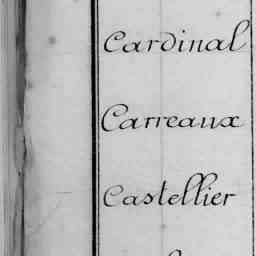 Cardinal
Carreaux
Castellier